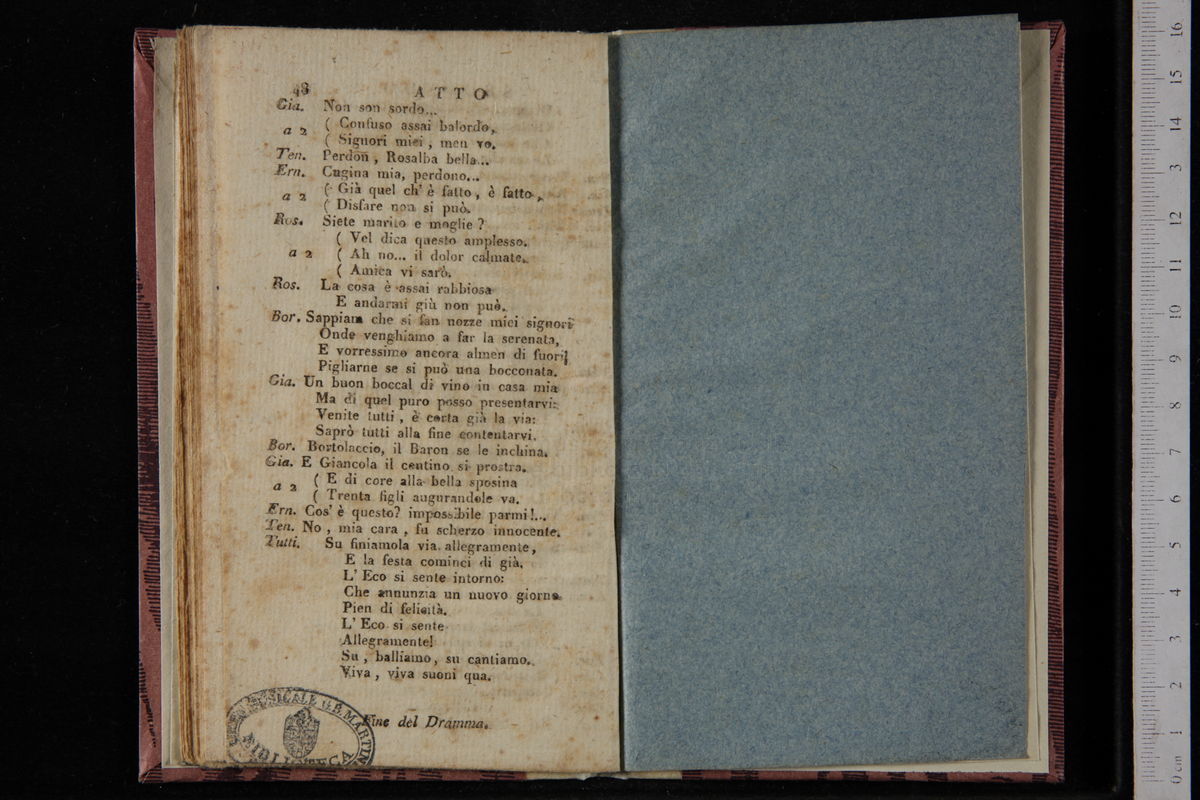 48 ATTO
Gia. Non son sordo...
a 2 ( Confuso assai balordo,
( Signori miei, men vo.
Ten. Perdon, Rosalba bella...
Ern. Cugina mia, perdono...
a 2 ( Già quel ch' è fatto, è fatto,
( Disfare non si può.
Ros. Siete marito e moglie?
( Vel dica questo amplesso.
a 2 ( Ah no... il dolor calmate.
( Amica vi sarò.
Ros. La cosa è assai rabbiosa
E andarmi giù non può.
Bor. Sappiam che si fan nozze miei signori
Onde venghiamo a far la serenata,
E vorressimo ancora almen di fuori
Pigliarne se si può una bocconata.
Gia. Un buon boccal di vino in casa mia
Ma di quel puro posso presentarvi:
Venite tutti, è certa già la via:
Saprò tutti alla fine contentarvi.
Bor. Bortolaccio, il Baron se le inchina.
Gia. E Giancola il centino si prostra.
a 2 ( E di core alla bella sposina
( Trenta figli augurandole va.
Ern. Cos' è questo? impossibile parmi!...
Ten. No, mia cara, fu scherzo innocente.
Tutti. Su finiamola via allegramente,
E la festa cominci di già.
L' Eco si sente intorno:
Che annunzia un nuovo giorno
Pien di felicità.
L' Eco si sente
Allegramente!
Su, balliamo, su cantiamo.
Viva, viva suoni qua.
Fine del Dramma.
MUSICALE G.B. MARTINI
BIBLIOTECA
0 cm 1 2 3 4 5 6 7 8 9 10 11 12 13 14 15 16